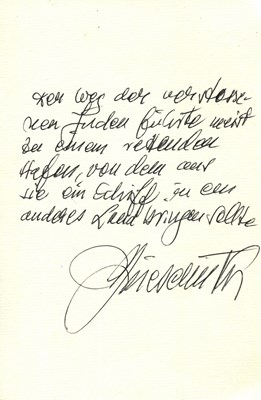 Der Weg der verstosse-
nen Juden führte meist
zu einem rettenden
Hafen, von dem aus
sie ein Schiff in ein
anderes Land bringen sollte